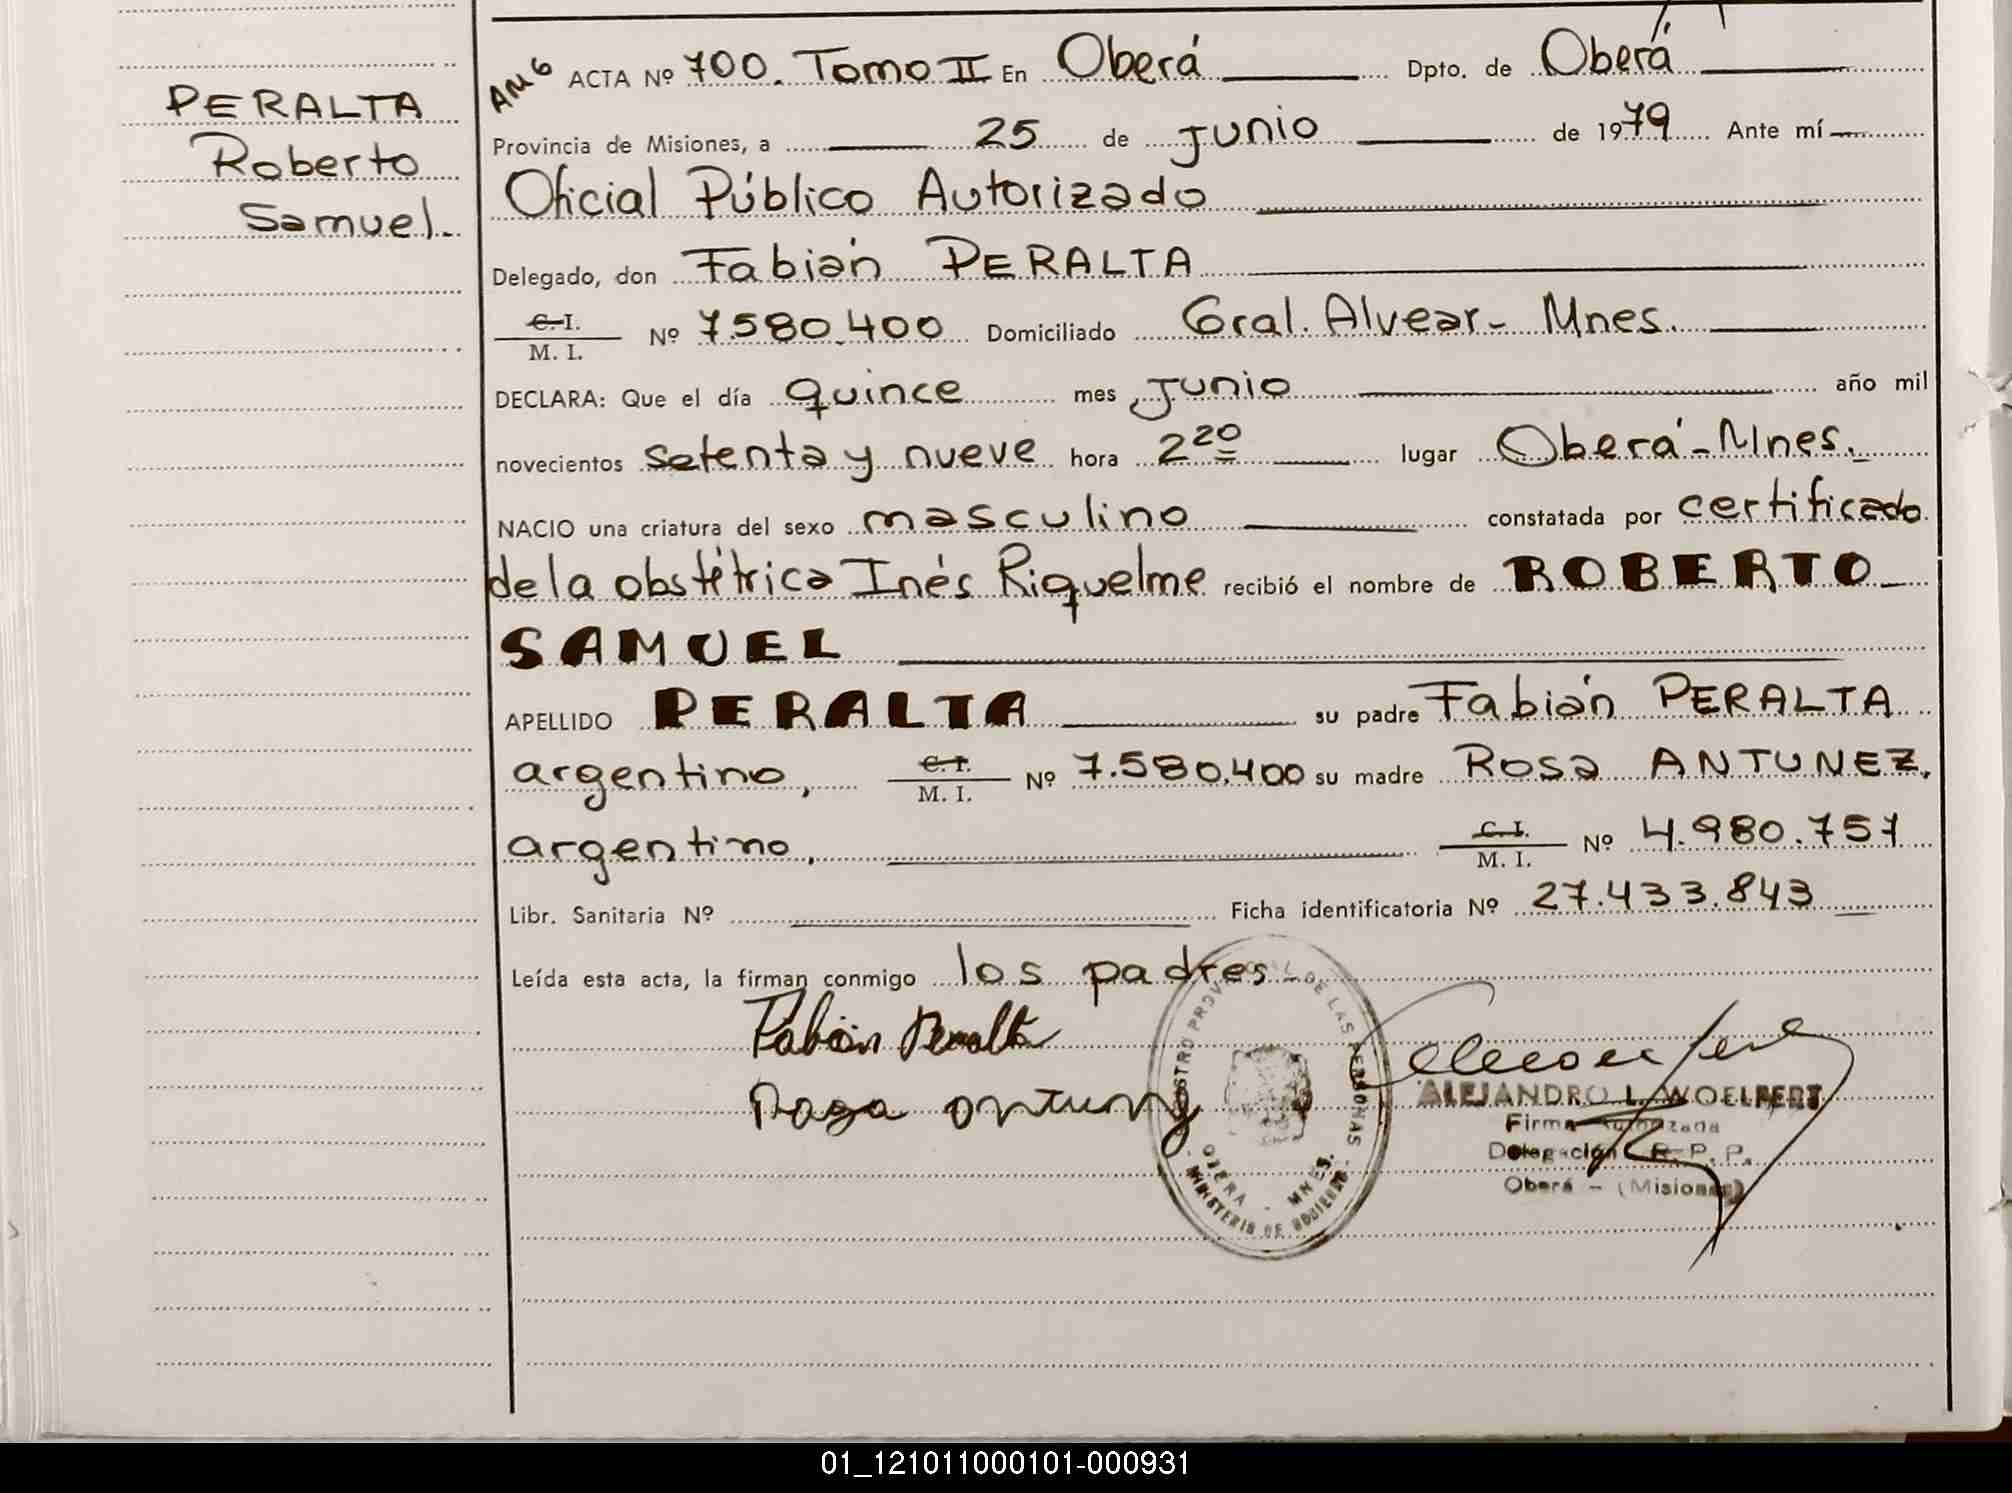 PERALTA
Roberto
Samuel.
ACTA Nº 700. Tomo II En Oberá Dpto. de Oberá
Provincia de Misiones, a 25 de Junio de 1979 Ante mí
Oficial Público Autorizado
Delegado, don Fabián PERALTA
C. I.
M. I.
Nº 7.580.400 Domiciliado Gral. Alvear - Mnes.
DECLARA: Que el día quince mes Junio año mil
novecientos setenta y nueve hora 2 20 lugar Oberá - Mnes.
NACIO una criatura del sexo masculino constatada por certificado
de la obstétrica Inés Riquelme recibió el nombre de ROBERTO
SAMUEL
APELLIDO PERALTA su padre Fabián PERALTA
argentino, C. I. / M. I. Nº 7.580.400 su madre Rosa ANTUNEZ,
argentino, C. I. / M. I. Nº 4.980.757
Libr. Sanitaria Nº Ficha identificatoria Nº 27.433.843
Leída esta acta, la firman conmigo los padres
Fabián Peralta
ALEJANDRO L. WOELPERT
Firma Autorizada
Delegación R. P. P.
Oberá - (Misiones)
REGISTRO PROVINCIAL DE LAS PERSONAS
OBERA - MNES.
MINISTERIO DE GOBIERNO
01_121011000101-000931